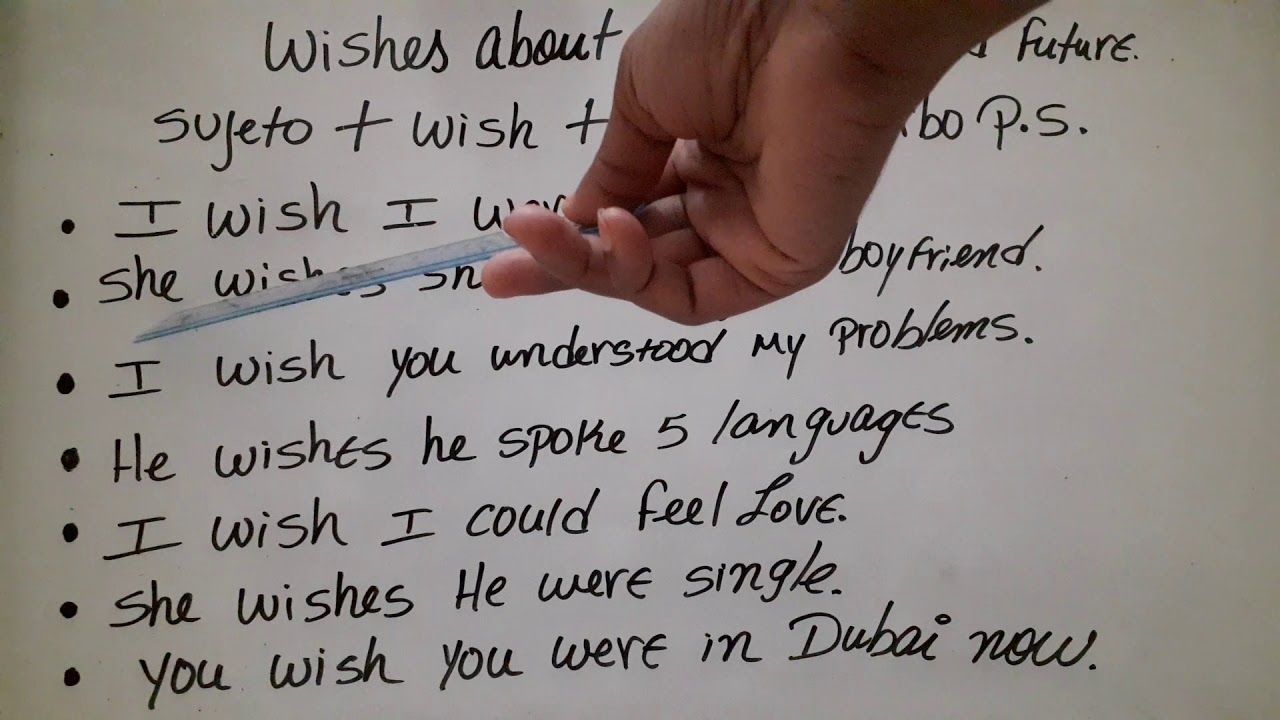 Wishes about future.
sujeto + wish + P.S.
• I wish I
• she wishes boyfriend.
• I wish you understood my problems.
• He wishes he spoke 5 languages
• I wish I could feel Love.
• she wishes He were single.
• you wish you were in Dubai now.